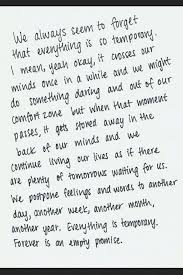 We always seem to forget
that everything is so temporary.
I mean, yeah okay, it crosses our
minds once in a while and we might
do something daring and out of our
comfort zone but when that moment
passes, it gets stored away in the
back of our minds and we
continue living our lives as if there
are plenty of tomorrows waiting for us.
We postpone feelings and words to another
day, another week, another month,
another year. Everything is temporary.
Forever is an empty promise.